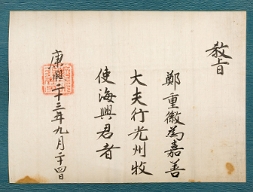 教旨
鄭重徽爲嘉善
大夫行光州牧
使海興君者
康熙二十三年九月二十四日